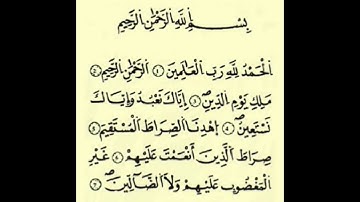 بِسْمِ اللهِ الرَّحْمٰنِ الرَّحِيْمِ
اَلْحَمْدُ لِلّٰهِ رَبِّ الْعَالَمِيْنَ ١ اَلرَّحْمٰنِ الرَّحِيْمِ ٢
مٰلِكِ يَوْمِ الدِّيْنِ ٣ اِيَّاكَ نَعْبُدُ وَاِيَّاكَ
نَسْتَعِيْنُ ٤ اِهْدِنَا الصِّرَاطَ الْمُسْتَقِيْمَ ٥
صِرَاطَ الَّذِيْنَ اَنْعَمْتَ عَلَيْهِمْ ٦ غَيْرِ
الْمَغْضُوْبِ عَلَيْهِمْ وَلَا الضَّالِّيْنَ ٧